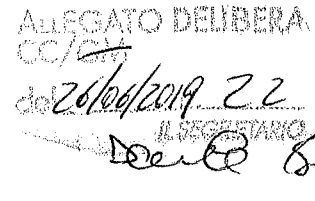 ALLEGATO DELIBERA
CC/GM
del 26/06/2019 22
IL SEGRETARIO